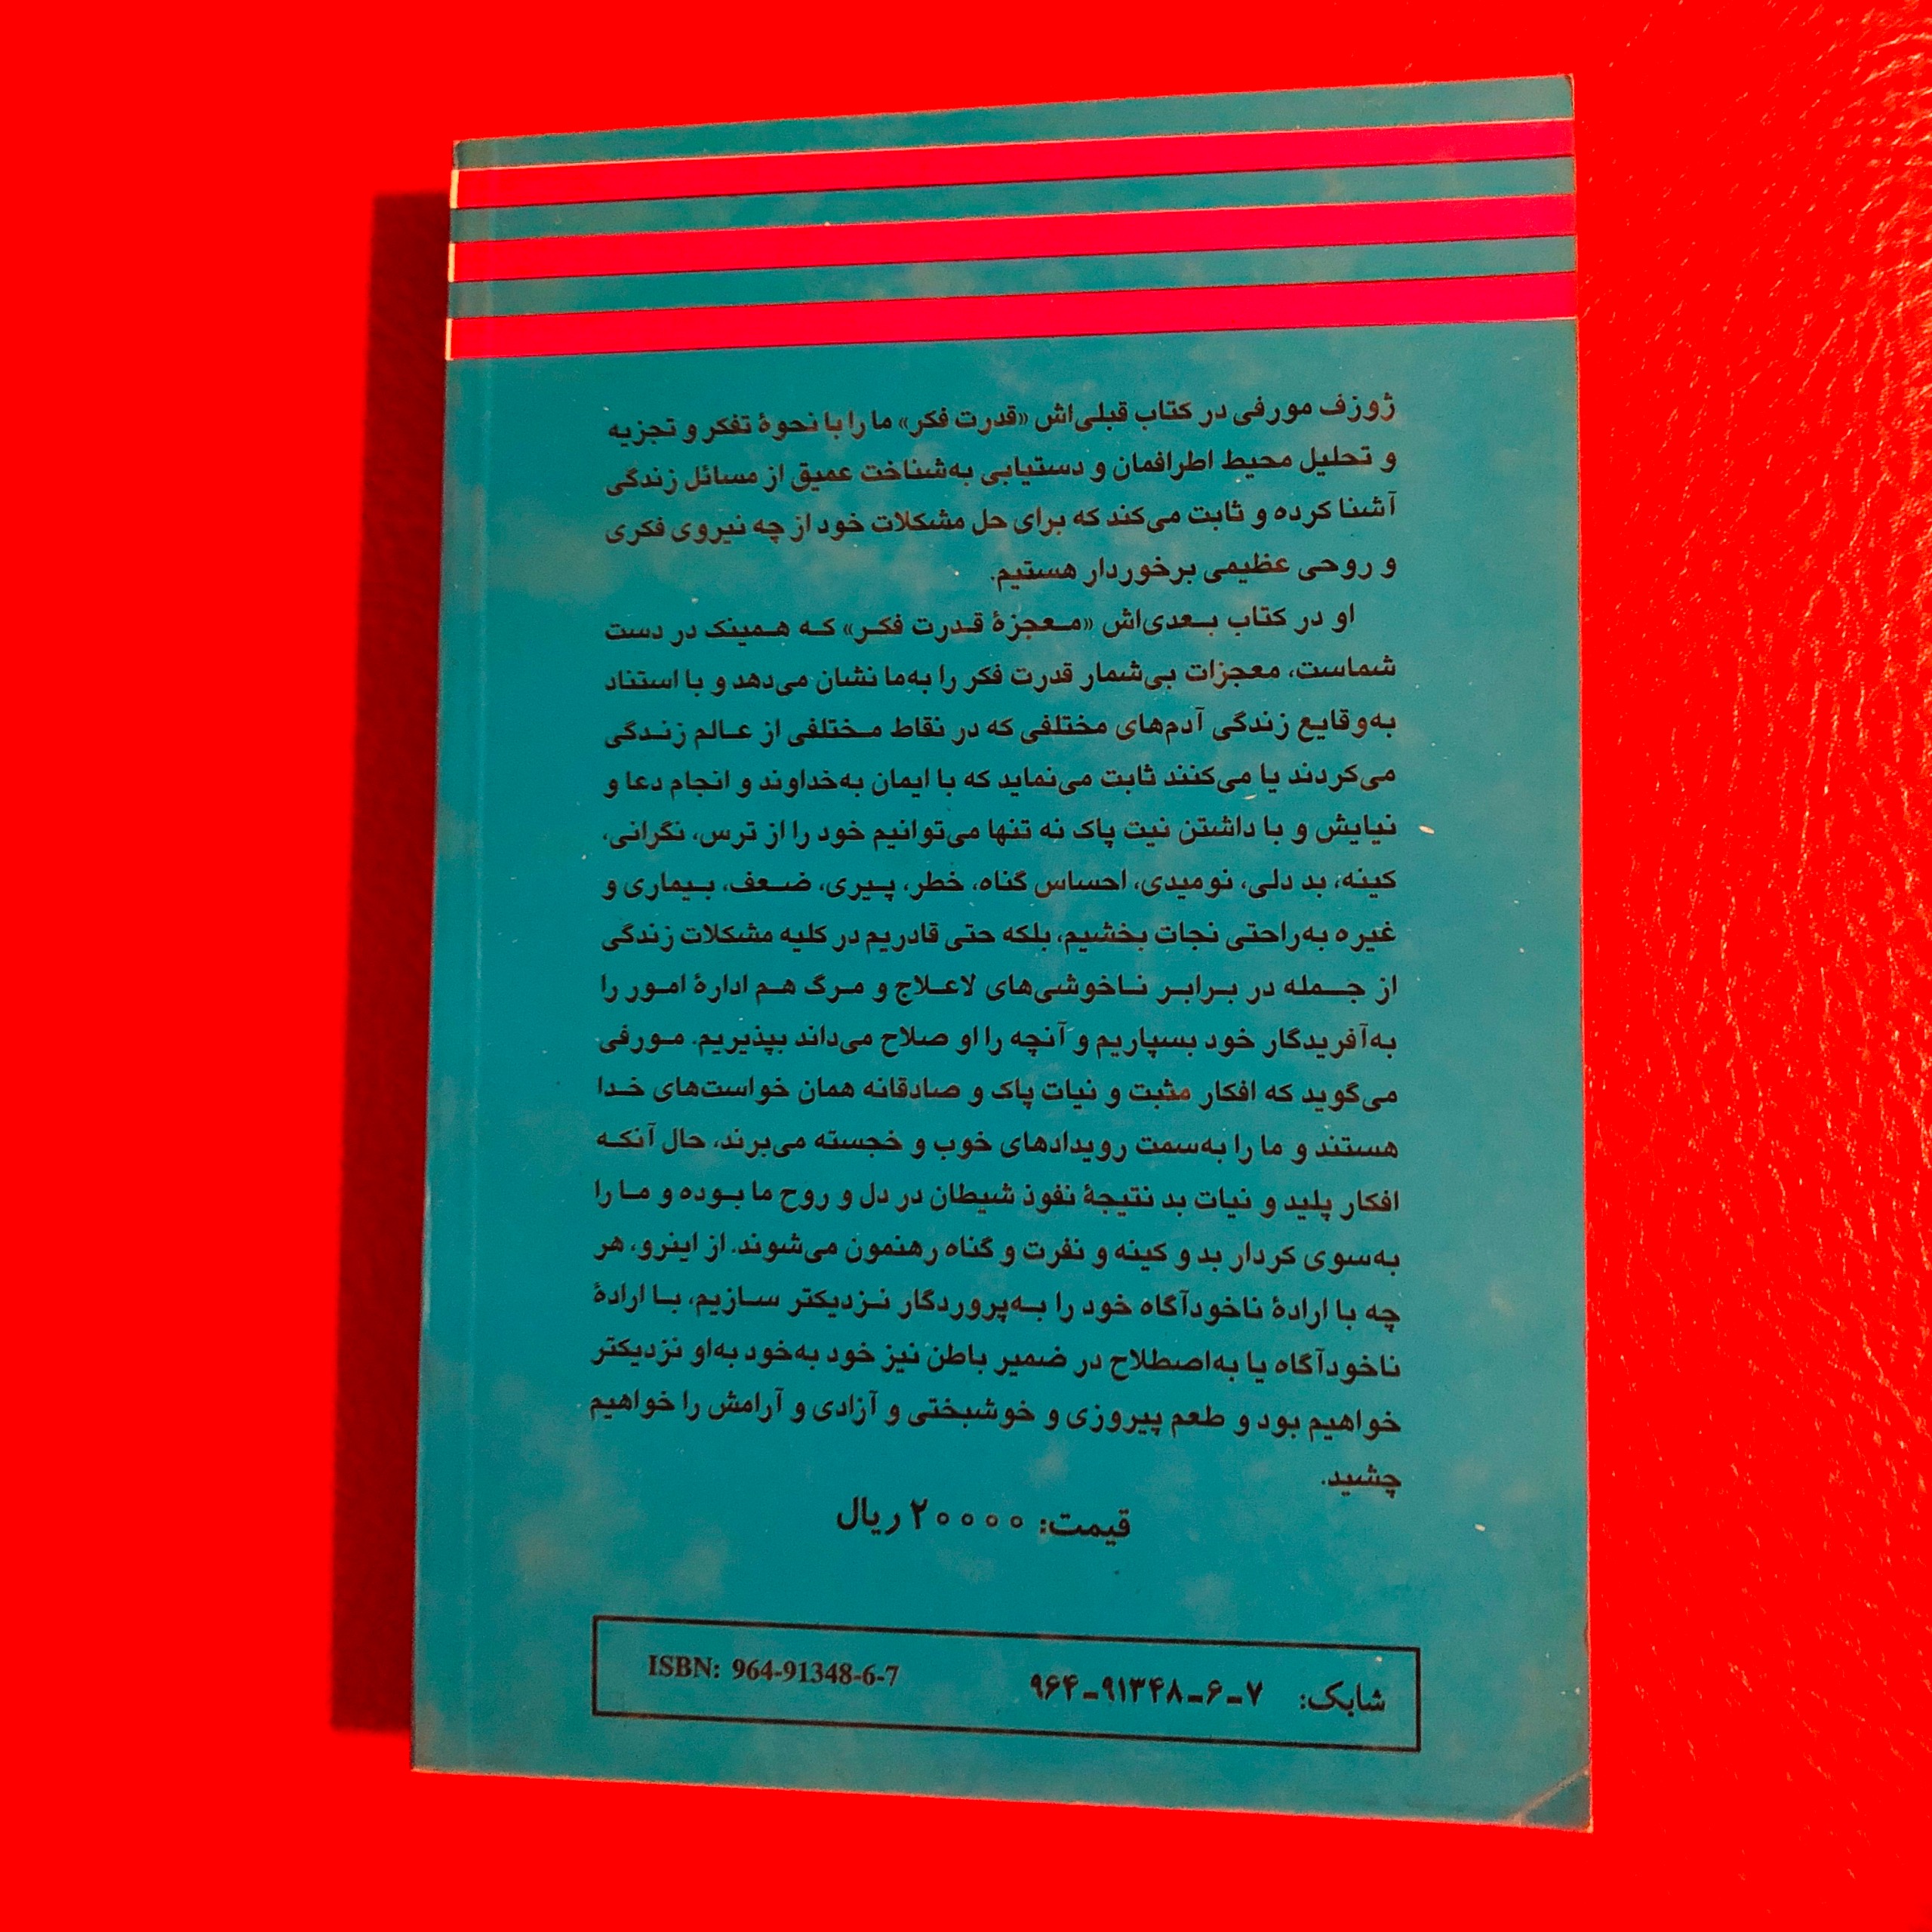 ژوزف مورفی در کتاب قبلی‌اش «قدرت فکر» ما را با نحوهٔ تفکر و تجزیه
و تحلیل محیط اطرافمان و دستیابی به‌شناخت عمیق از مسائل زندگی
آشنا کرده و ثابت می‌کند که برای حل مشکلات خود از چه نیروی فکری
و روحی عظیمی برخوردار هستیم.
او در کتاب بـعدی‌اش «مـعجزهٔ قـدرت فکـر» کـه هـمینک در دست
شماست، معجزات بی‌شمار قدرت فکر را به‌ما نشان می‌دهد و با استناد
به‌وقایع زندگی آدم‌های مختلفی که در نقاط مـختلفی از عـالم زنـدگی
می‌کردند یا می‌کنند ثابت می‌نماید که با ایمان به‌خداوند و انجام دعا و
نیایش و با داشتن نیت پاک نه تنها می‌توانیم خود را از ترس، نگرانی،
کینه، بد دلی، نومیدی، احساس گناه، خطر، پـیری، ضـعف، بـیماری و
غیره به‌راحتی نجات بخشیم، بلکه حتی قادریم در کلیه مشکلات زندگی
از جـمله در بـرابـر نـاخوشی‌های لاعـلاج و مـرگ هـم ادارهٔ امـور را
به‌آفریدگار خود بسپاریم و آنچه را او صلاح می‌داند بپذیریم. مـورفی
می‌گوید که افکار مثبت و نیات پاک و صادقانه همان خواست‌های خـدا
هستند و ما را به‌سمت رویدادهای خوب و خجسته می‌برند، حال آنکـه
افکار پلید و نیات بد نتیجهٔ نفوذ شیطان در دل و روح ما بـوده و مـا را
به‌سوی کردار بد و کینه و نفرت و گناه رهنمون می‌شوند. از اینرو، هر
چه با ارادهٔ ناخودآگاه خود را بـه‌پروردگار نـزدیکتر سـازیم، بـا ارادهٔ
ناخودآگاه یا به‌اصطلاح در ضمیر باطن نیز خود به‌خود به‌او نزدیکتر
خواهیم بود و طعم پیروزی و خوشبختی و آزادی و آرامش را خواهیم
چشید.
قیمت: ۲۰۰۰۰ ریال
شابک: ۷-۶-۹۱۳۴۸-۹۶۴
ISBN: 964-91348-6-7